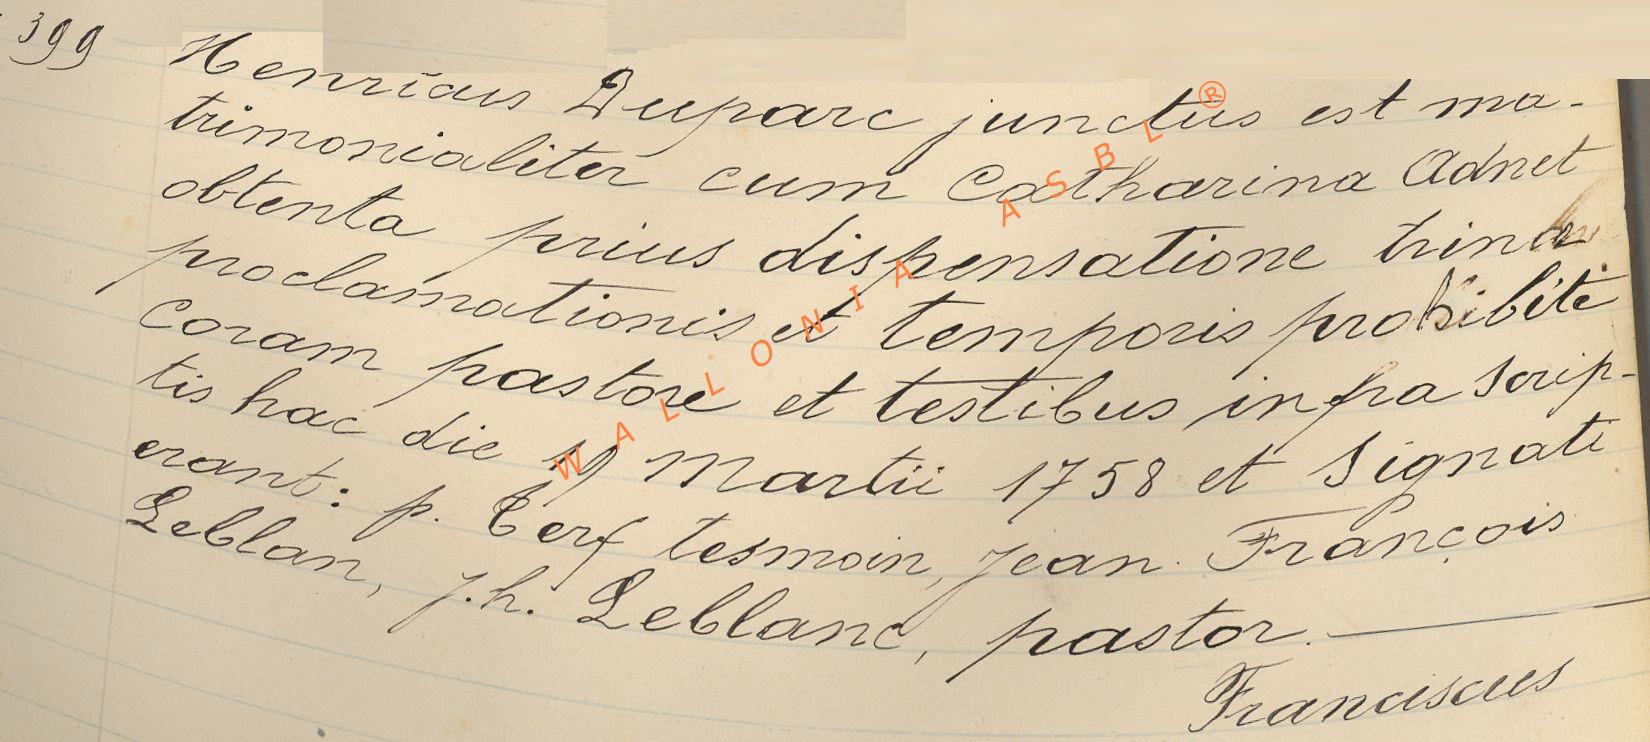 399 Henricus Duparc junctus est ma-
trimonialiter cum Catharina Adnet
obtenta prius dispensatione trina
proclamationis et temporis prohibite
coram pastore et testibus infra scrip-
tis hac die Martii 1758 et signati
erant: p. Cerf tesmoin, Jean François
Leblan, J.h. Leblanc, pastor.
Franciscus
WALLONIA ASBL ®